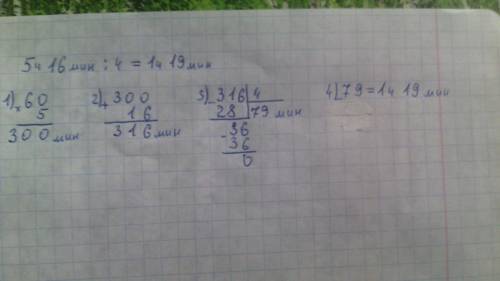 5ч 16мин : 4 = 1ч 19мин
1) × 60
5
300 мин
2) + 300
16
316 мин
3) - 316 | 4
28 | 79 мин
- 36
36
0
4) 79 = 1ч 19 мин